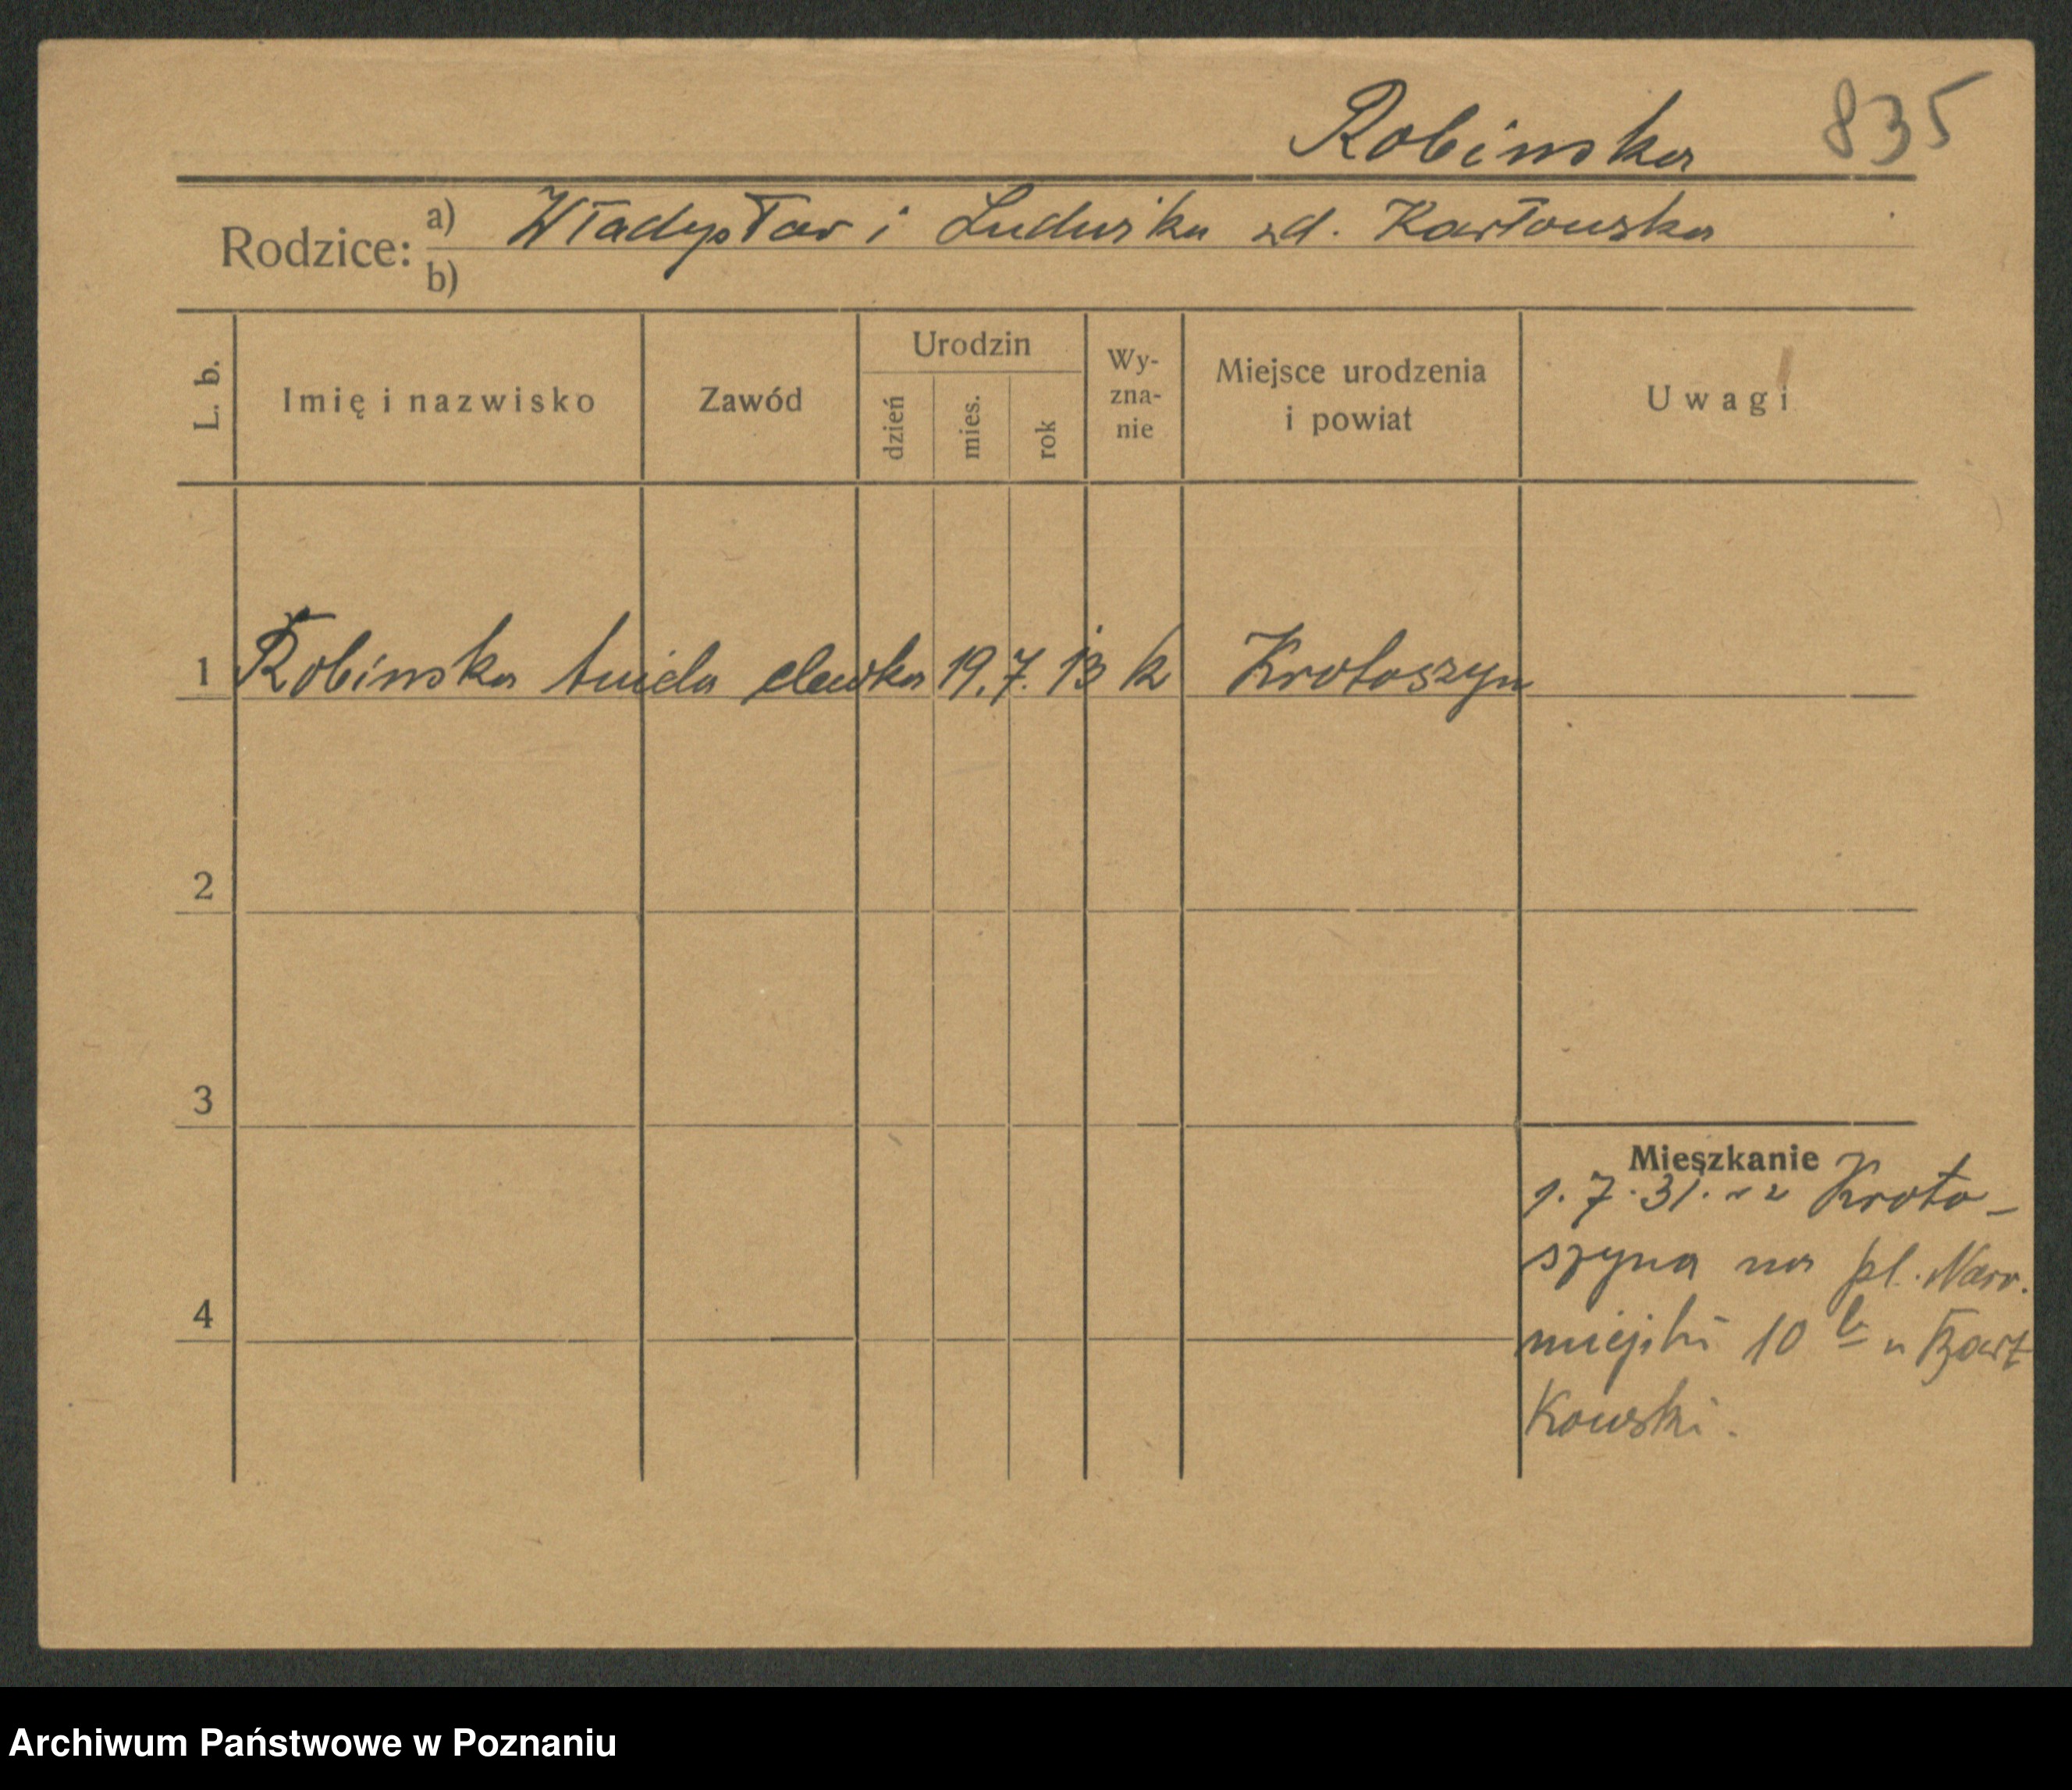 Robinska 835
Rodzice: a) Władysław i Ludwika zd. Karłowska
b)
L. b. Imię i nazwisko Zawód Urodzin dzień mies. rok Wy-zna-nie Miejsce urodzenia i powiat Uwagi
1 Robinska 19. 7. 13 k Krotoszyn
2
3
4
Mieszkanie
1. 7. 31. z Kroto-
szyna na pl. Nowo.
miejski 10 u Bart
Kowski.
Archiwum Państwowe w Poznaniu